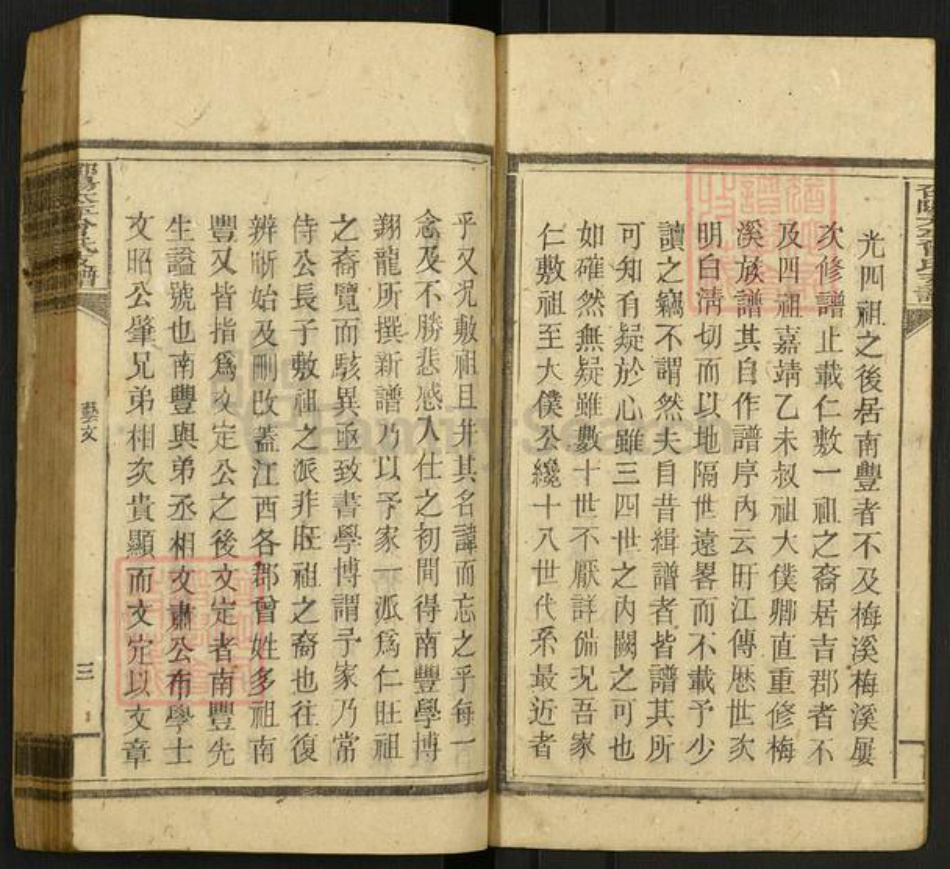 光四祖之後居南豐者不及梅溪梅溪屢
次修譜止載仁敷一祖之裔居吉郡者不
及四祖嘉靖乙未叔祖大僕卿直重修梅
溪族譜其自作譜序內云旴江傳歷世次
明白清切而以地隔世遠畧而不載予少
讀之竊不謂然夫自昔緝譜者皆譜其所
可知有疑於心雖三四世之內闕之可也
如確然無疑雖數十世不厭詳俻況吾家
仁敷祖至大僕公纔十八世代系最近者
乎又況敷祖且并其名諱而忘之乎每一
念及不勝悲感入仕之初間得南豐學博
翔龍所撰新譜乃以予家一派爲仁旺祖
之裔覽而駭異亟致書學博謂予家乃常
侍公長子敷祖之派非旺祖之裔也往復
辨晰始及刪改蓋江西各郡曾姓多祖南
豐又皆指爲文定公之後文定者南豐先
生謚號也南豐與弟丞相文肅公布學士
文昭公肇兄弟相次貴顯而文定以文章
藝文
三
FamilySearch